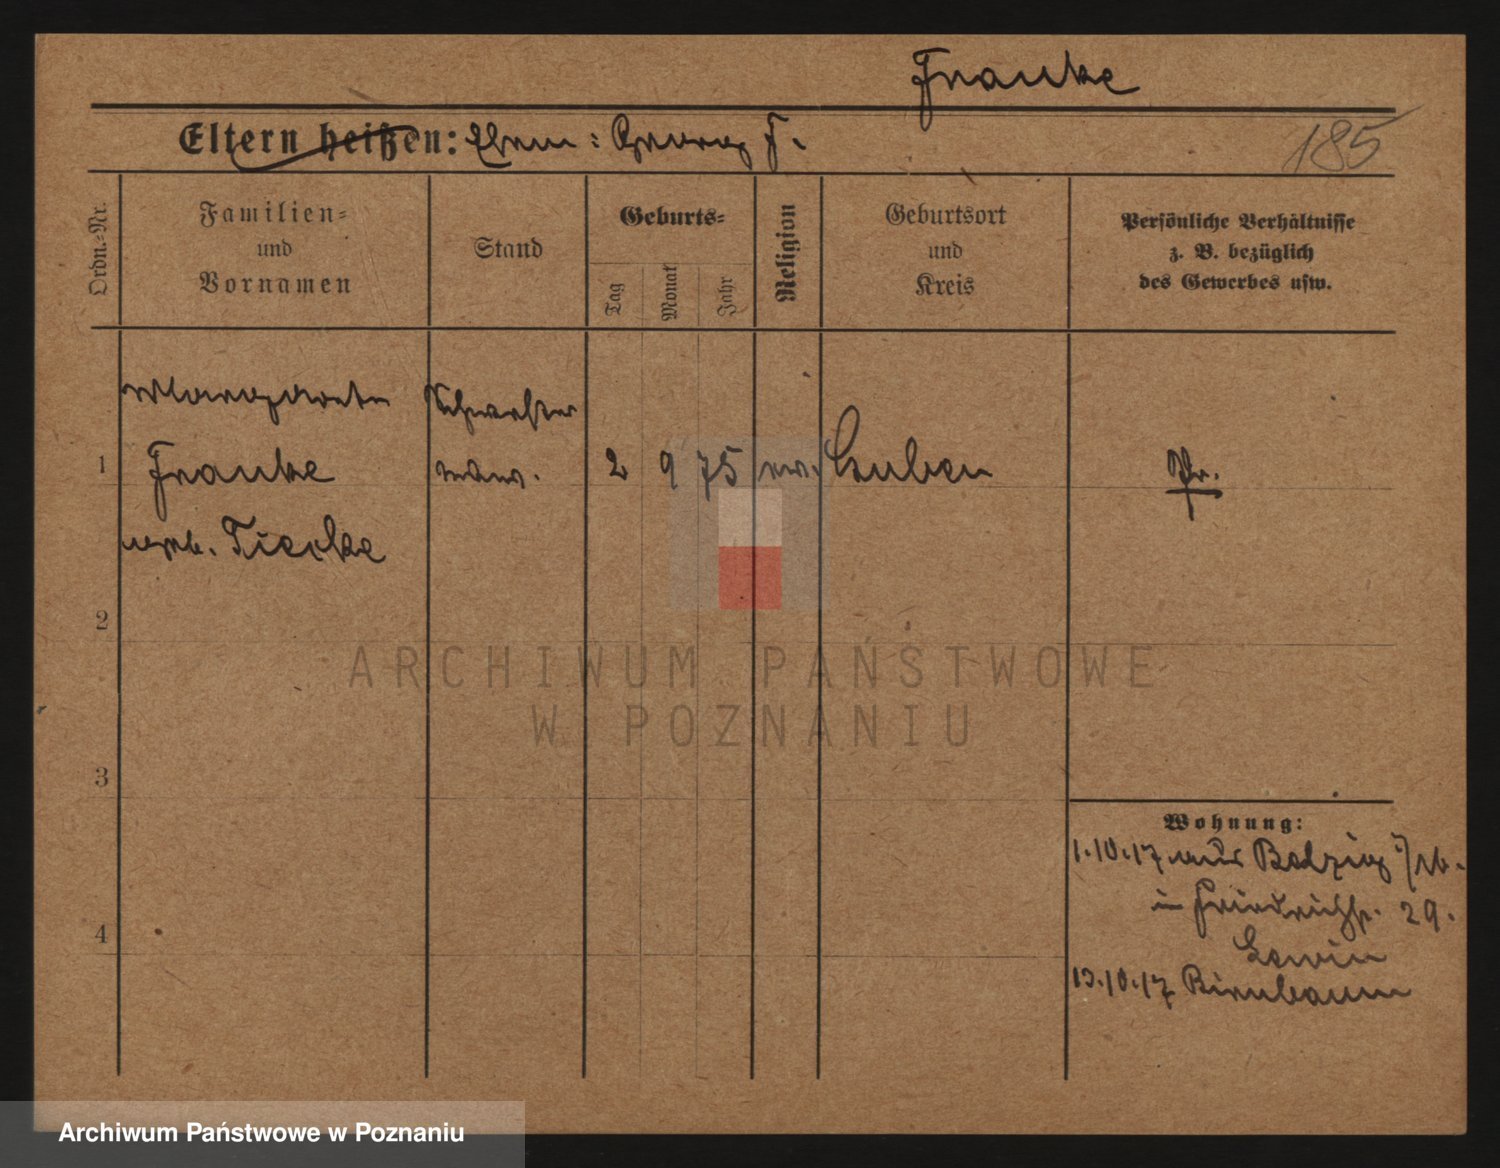 Franke
Eltern heißen: Ehem: Georg F.
185
Ordn.-Nr.
Familien-
und
Vornamen
Stand
Geburts-
Tag
Monat
Jahr
Religion
Geburtsort
und
Kreis
Persönliche Verhältnisse
z. B. bezüglich
des Gewerbes usw.
1
Margarete
Franke
Schwester
2 9 75 ev. Guben
Pr.
2
3
4
Wohnung:
1.10.17 aus Belzig
in Friedrichstr. 29.
Lewin
13.10.17 Birnbaum
ARCHIWUM PAŃSTWOWE
W POZNANIU
Archiwum Państwowe w Poznaniu